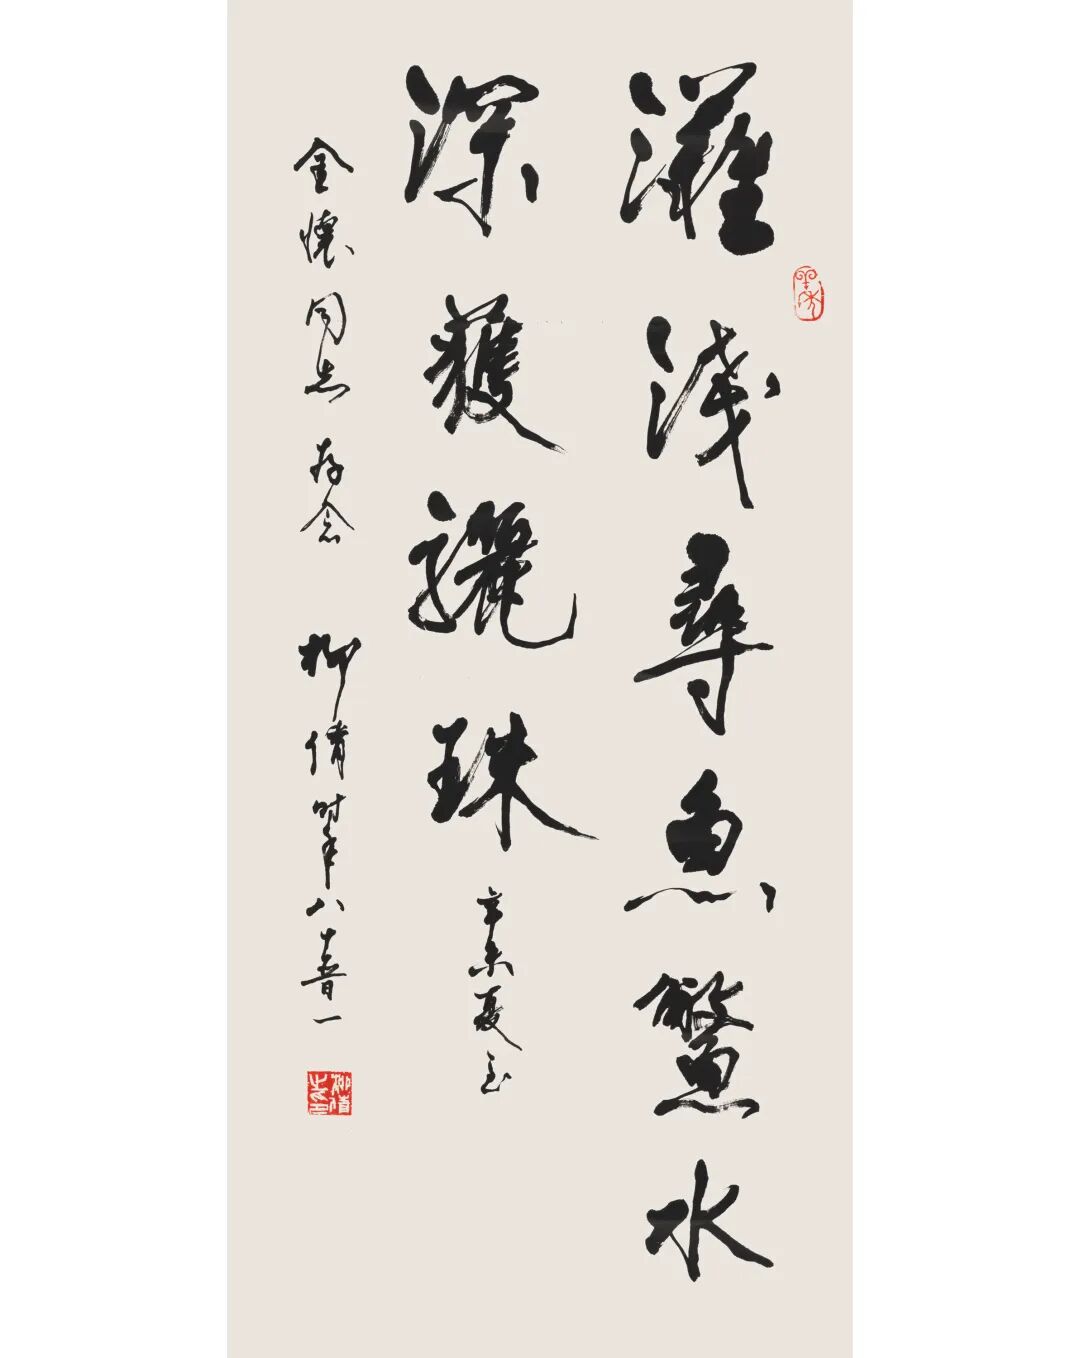 灘淺尋魚鱉水
深獲驪珠 辛未夏至
金懷同志存念 柳倩时年八十晉一